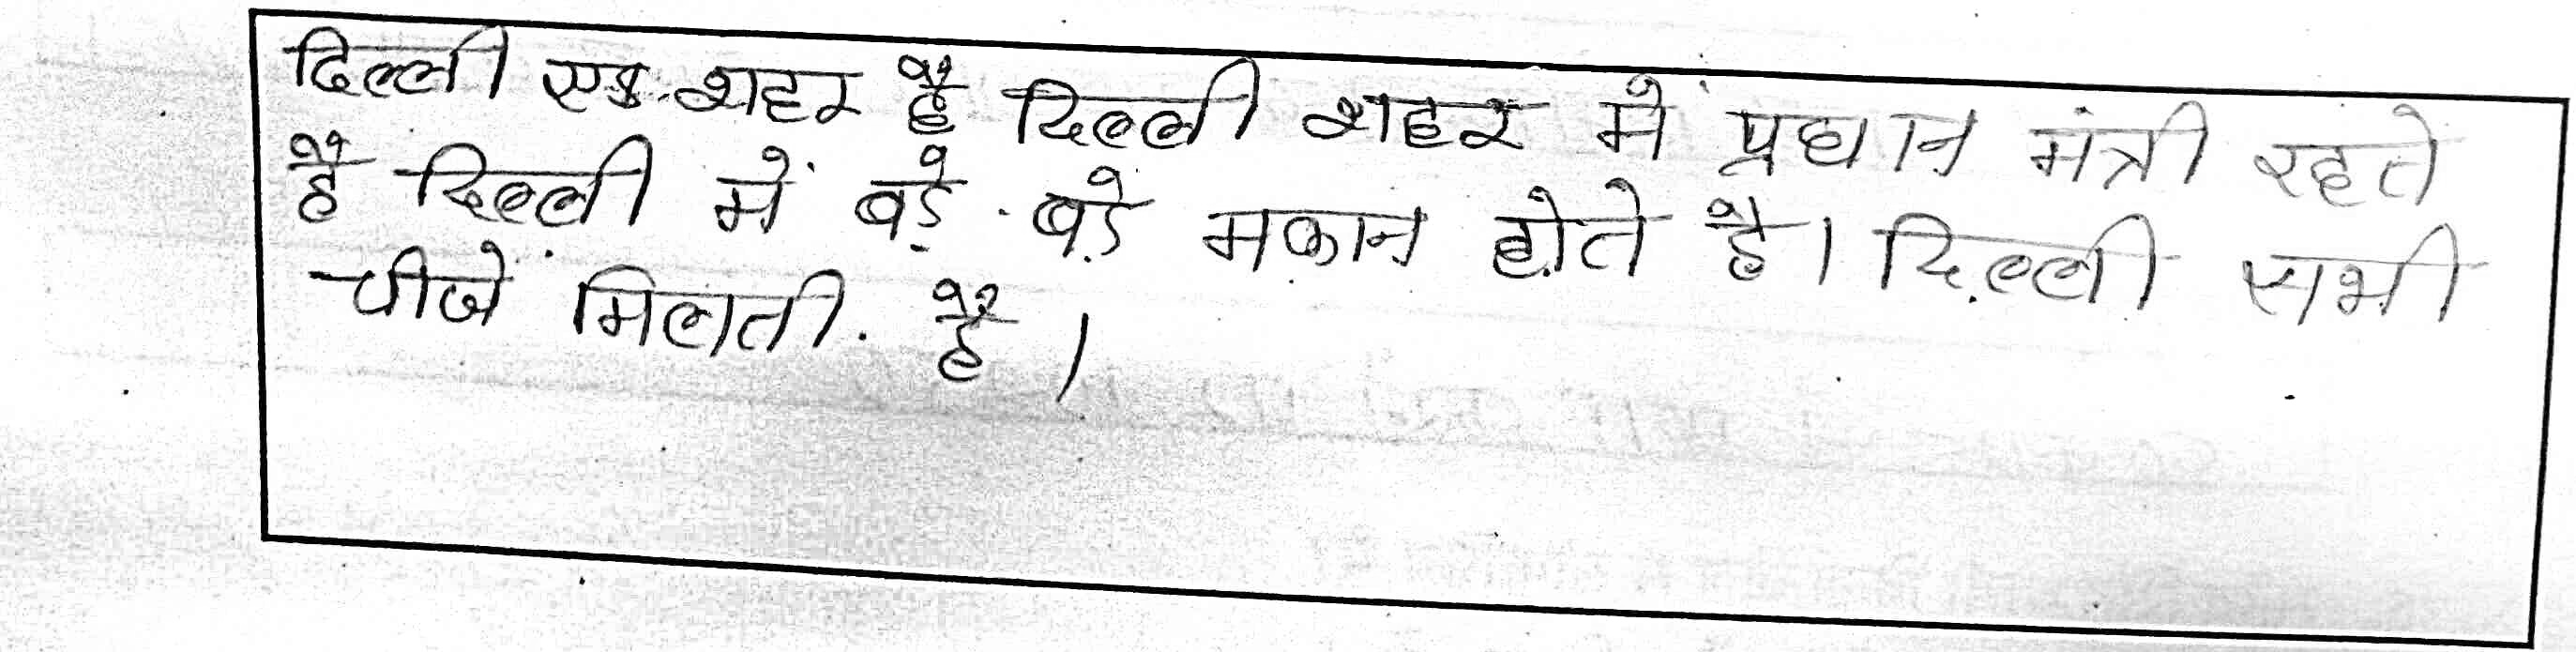 दिल्ली एक शहर है दिल्ली शहर में प्रधान मंत्री रहते
है दिल्ली में बड़े बड़े मकान होते है। दिल्ली सभी
चीजें मिलती है।